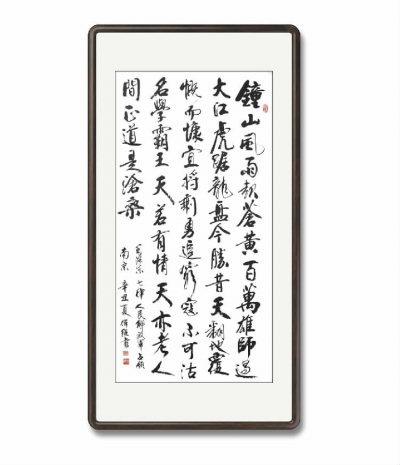 鐘山風雨起蒼黃百萬雄師過
大江虎踞龍盤今勝昔天翻地覆
慨而慷宜將剩勇追窮寇不可沽
名學霸王天若有情天亦老人
間正道是滄桑
毛澤東七律人民解放軍占領
南京辛丑夏書